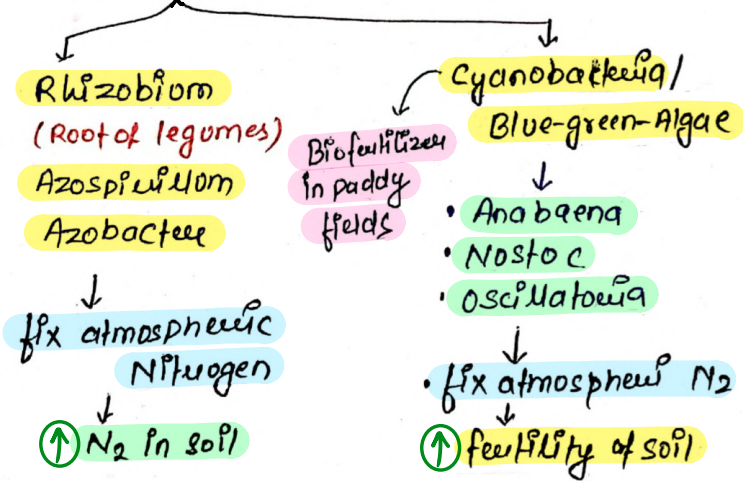 Rhizobium
(Root of legumes)
Azospirillum
Azobacter
fix atmospheric
Nitrogen
↑ N2 in soil
Cyanobacteria/
Blue-green-Algae
Biofertilizer
in paddy
fields
• Anabaena
• Nostoc
• Oscillatoria
• fix atmospheri N2
↑ fertility of soil